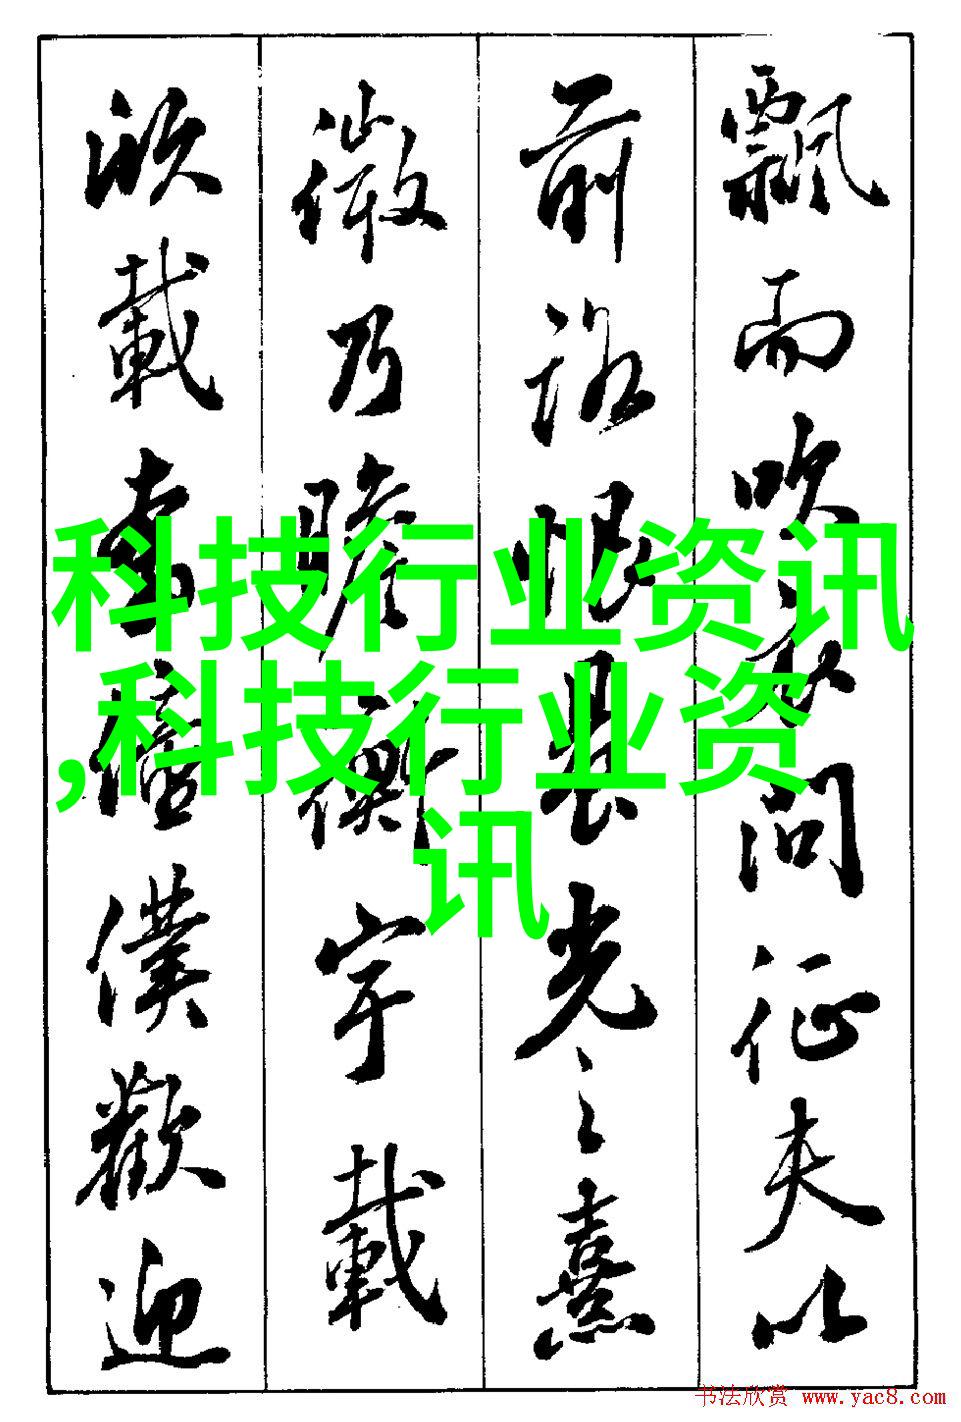 飄而吹衣問征夫以
前路恨晨光之熹
微乃瞻衡宇載
欣載奔僮僕歡迎
科技行业资讯
,科技行业资
讯
书法欣赏 www.yac8.com